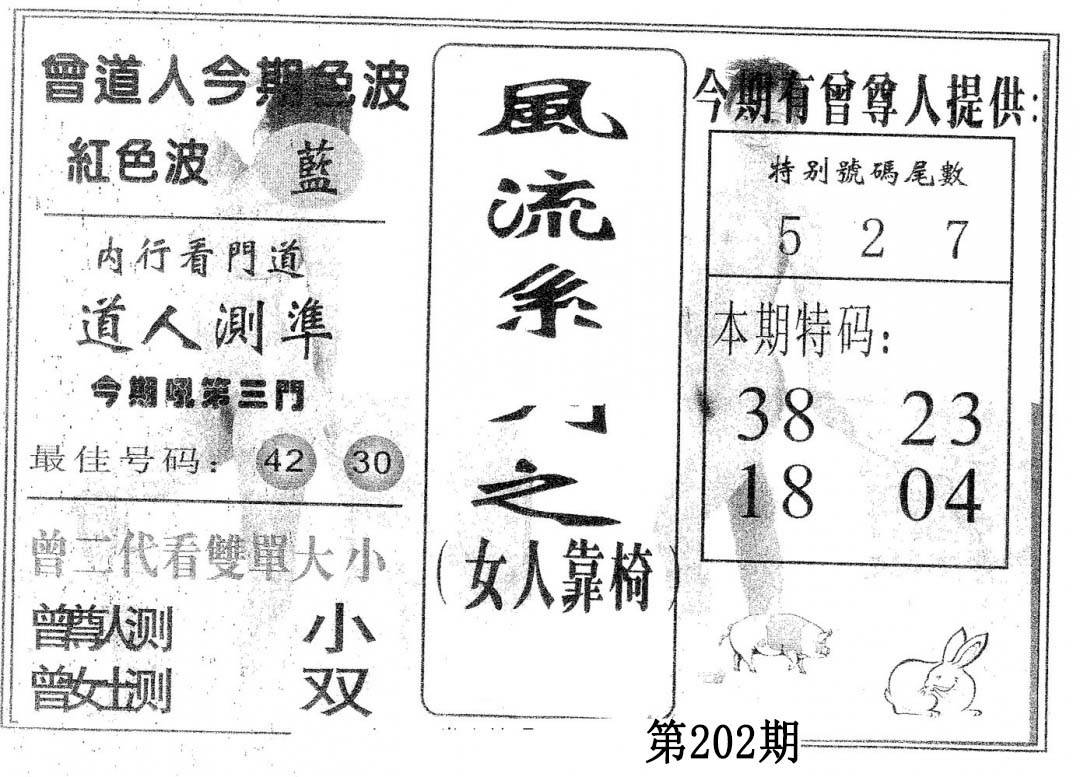 曾道人今期色波
紅色波 藍
内行看門道
道人測準
今期吼第三門
最佳号码: 42 30
曾二代看雙單大小
曾尊人测 小
曾女士测 双
風流系
之
(女人靠椅)
今期有曾尊人提供:
特别號碼尾數
5 2 7
本期特码:
38 23
18 04
第202期